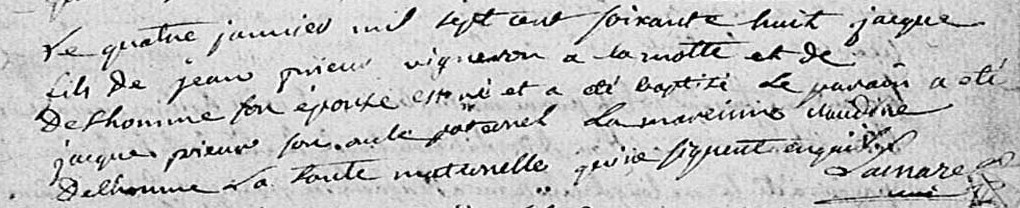 Le quatre janvier mil sept cent soixante huit jacque
fils de jean prieur vigneron a lamotte et de
Delhomme son épouse est né et a été baptisé Le parain a été
jacque prieur son oncle paternel La mareinne claudine
Delhomme La tante maternelle qui ne signent enquis
Lamare